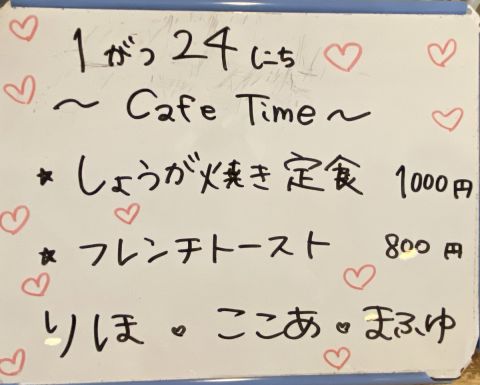 1がつ24にち
～ Cafe Time ～
★ しょうが焼き定食 1000円
★ フレンチトースト 800円
りほ・ここあ・まふゆ